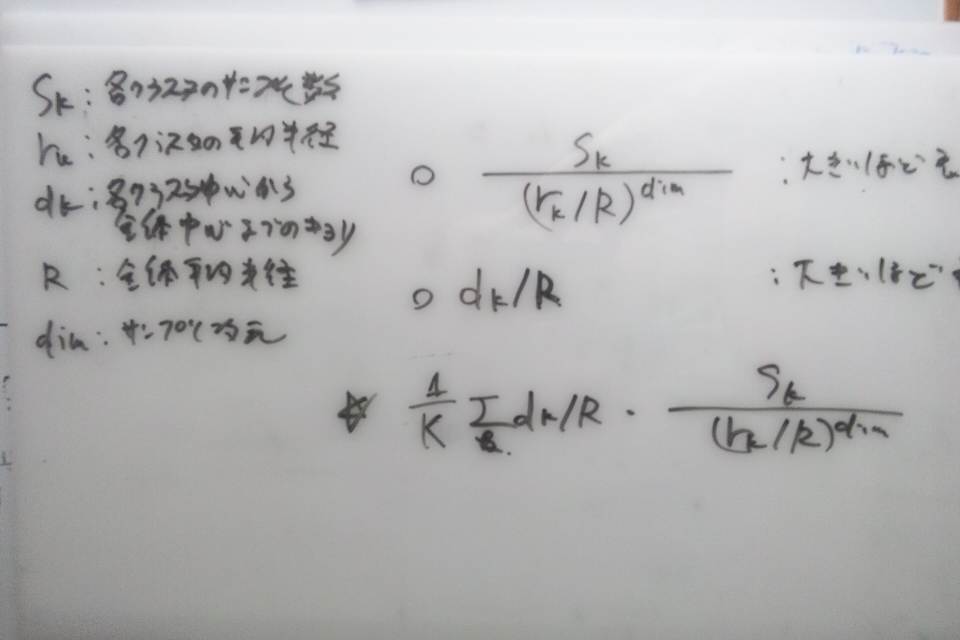 Sk : 各クラスタのサンプル数
rk : 各クラスタの平均半径
dk : 各クラスタ中心から
全体中心までのきょり
R : 全体平均半径
dim : サンプル次元
○ Sk/(rk/R)^dim : 大きいほど
○ dk/R : 大きいほど
☆ 1/K Σk dk/R · Sk/(rk/R)^dim